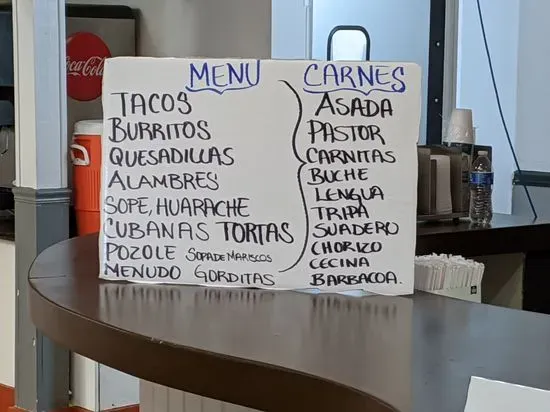 Coca-Cola
MENU
TACOS
BURRITOS
QUESADILLAS
ALAMBRES
SOPE, HUARACHE
CUBANAS TORTAS
POZOLE SOPA DE MARISCOS
MENUDO GORDITAS
CARNES
ASADA
PASTOR
CARNITAS
BUCHE
LENGUA
TRIPA
SUADERO
CHORIZO
CECINA
BARBACOA.